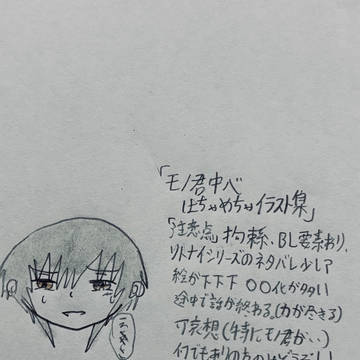 「モノ君中心
はちゃめちゃイラスト集」
「注意点」拘束、BL要素あり、
リトナイシリーズのネタバレ少し?
絵が下下下 〇〇化が多い
途中で話が終わる(力が尽きる)
可哀想(特にモノ君が‥)
何でもありの方のみどうぞ!!